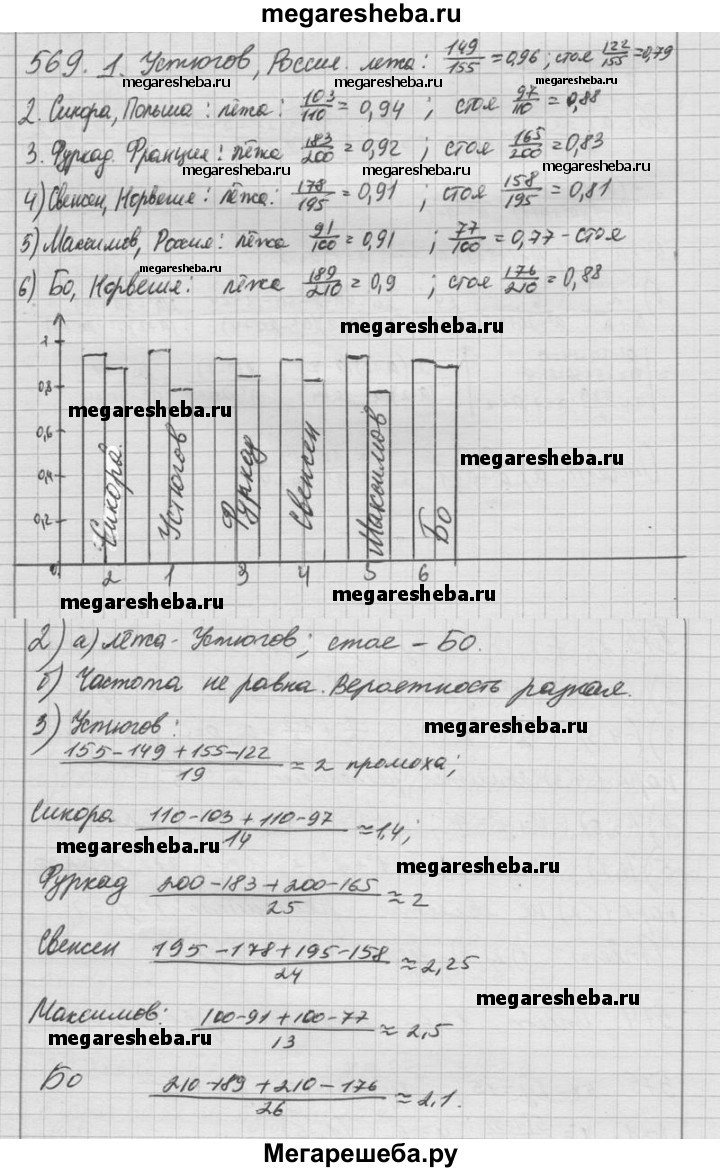 megaresheba.ru
569. 1. Устюгов, Россия. лежа: 149/155 = 0,96; стоя 122/155 = 0,79
megaresheba.ru megaresheba.ru
2. Сикора, Польша: лёжа: 103/110 = 0,94 ; стоя 97/110 = 0,88
megaresheba.ru megaresheba.ru
3. Фуркад. Франция: лёжа 183/200 = 0,92 ; стоя 165/200 = 0,83
4) Свенсен, Норвегия: лёжа: 178/195 = 0,91 ; стоя 158/195 = 0,81
megaresheba.ru megaresheba.ru
5) Максимов, Россия: лёжа 91/100 = 0,91 ; 77/100 = 0,77 - стоя
megaresheba.ru
6) Бо, Норвегия: лёжа 189/210 = 0,9 ; стоя 176/210 = 0,88
megaresheba.ru
1
0,8
megaresheba.ru
0,6
megaresheba.ru
0,4
0,2
0
Сикора.
Устюгов
Фуркад
Свенсен
Максимов
Бо
2 1 3 4 5 6
megaresheba.ru megaresheba.ru
2) а) лёжа - Устюгов; стоя - БО.
б) Частота не равна. Вероятность разная.
3) Устюгов:
megaresheba.ru
155-149+155-122/19 ≈ 2 промаха;
Сикора 110-103+110-97/14 ≈ 1,4;
megaresheba.ru
megaresheba.ru
Фуркад 200-183+200-165/25 ≈ 2
Свенсен 195-178+195-158/24 ≈ 2,25
megaresheba.ru
Максимов: 100-91+100-77/13 ≈ 2,5
megaresheba.ru
Бо 210-189+210-176/26 ≈ 2,1.
Мегарешеба.ру